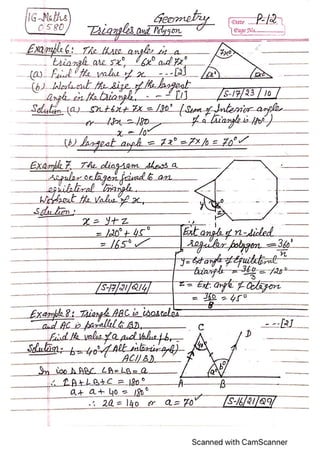 IG-Maths
0580
Geometry
Triangles and Polygon
Date
P-12
Page No.
Example 6: The three angles in a
triangle are 5x°, 6x° and 7x°
(a) Find the value of x --- [2]
(b) Workout the size of the largest
angle in the triangle. --- [1]
7x°
6x°
5x°
S-17/23/10
Solution (a) 5x+6x+7x = 180° (Sum of Interior angles
or 18x = 180 of a triangle is 180°)
x = 10
(b) largest angle = 7x° = 7×10 = 70° ✓
Example 7. The diagram shows a
regular octagon joined to an
equilateral triangle.
Workout the Value of x,
Solution:
x = y+z
= 120° + 45°
= 165° ✓
S-17/21/Q14
x°
y
z
Ext angle of n-sided
regular polygon = 360°/n
y = Ext angle of Equilateral
triangle = 360/3 = 120°
z = Ext. angle of Octagon
= 360/8 = 45°
Example 8: Triangle ABC is isosceles
and AC is parallel to BD.
--- [2]
Find the value of a and Value of b,
Solution: b = 40° ✓ (Alt interior a/s)
AC||BD.
In iso △ ABC. ∠A = ∠B = a
∴ ∠A + ∠B + C = 180°
a + a + 40 = 180°
∴ 2a = 140 or a = 70° ✓
C
D
40°
a°
b°
A
B
S-16/21/Q9
Scanned with CamScanner